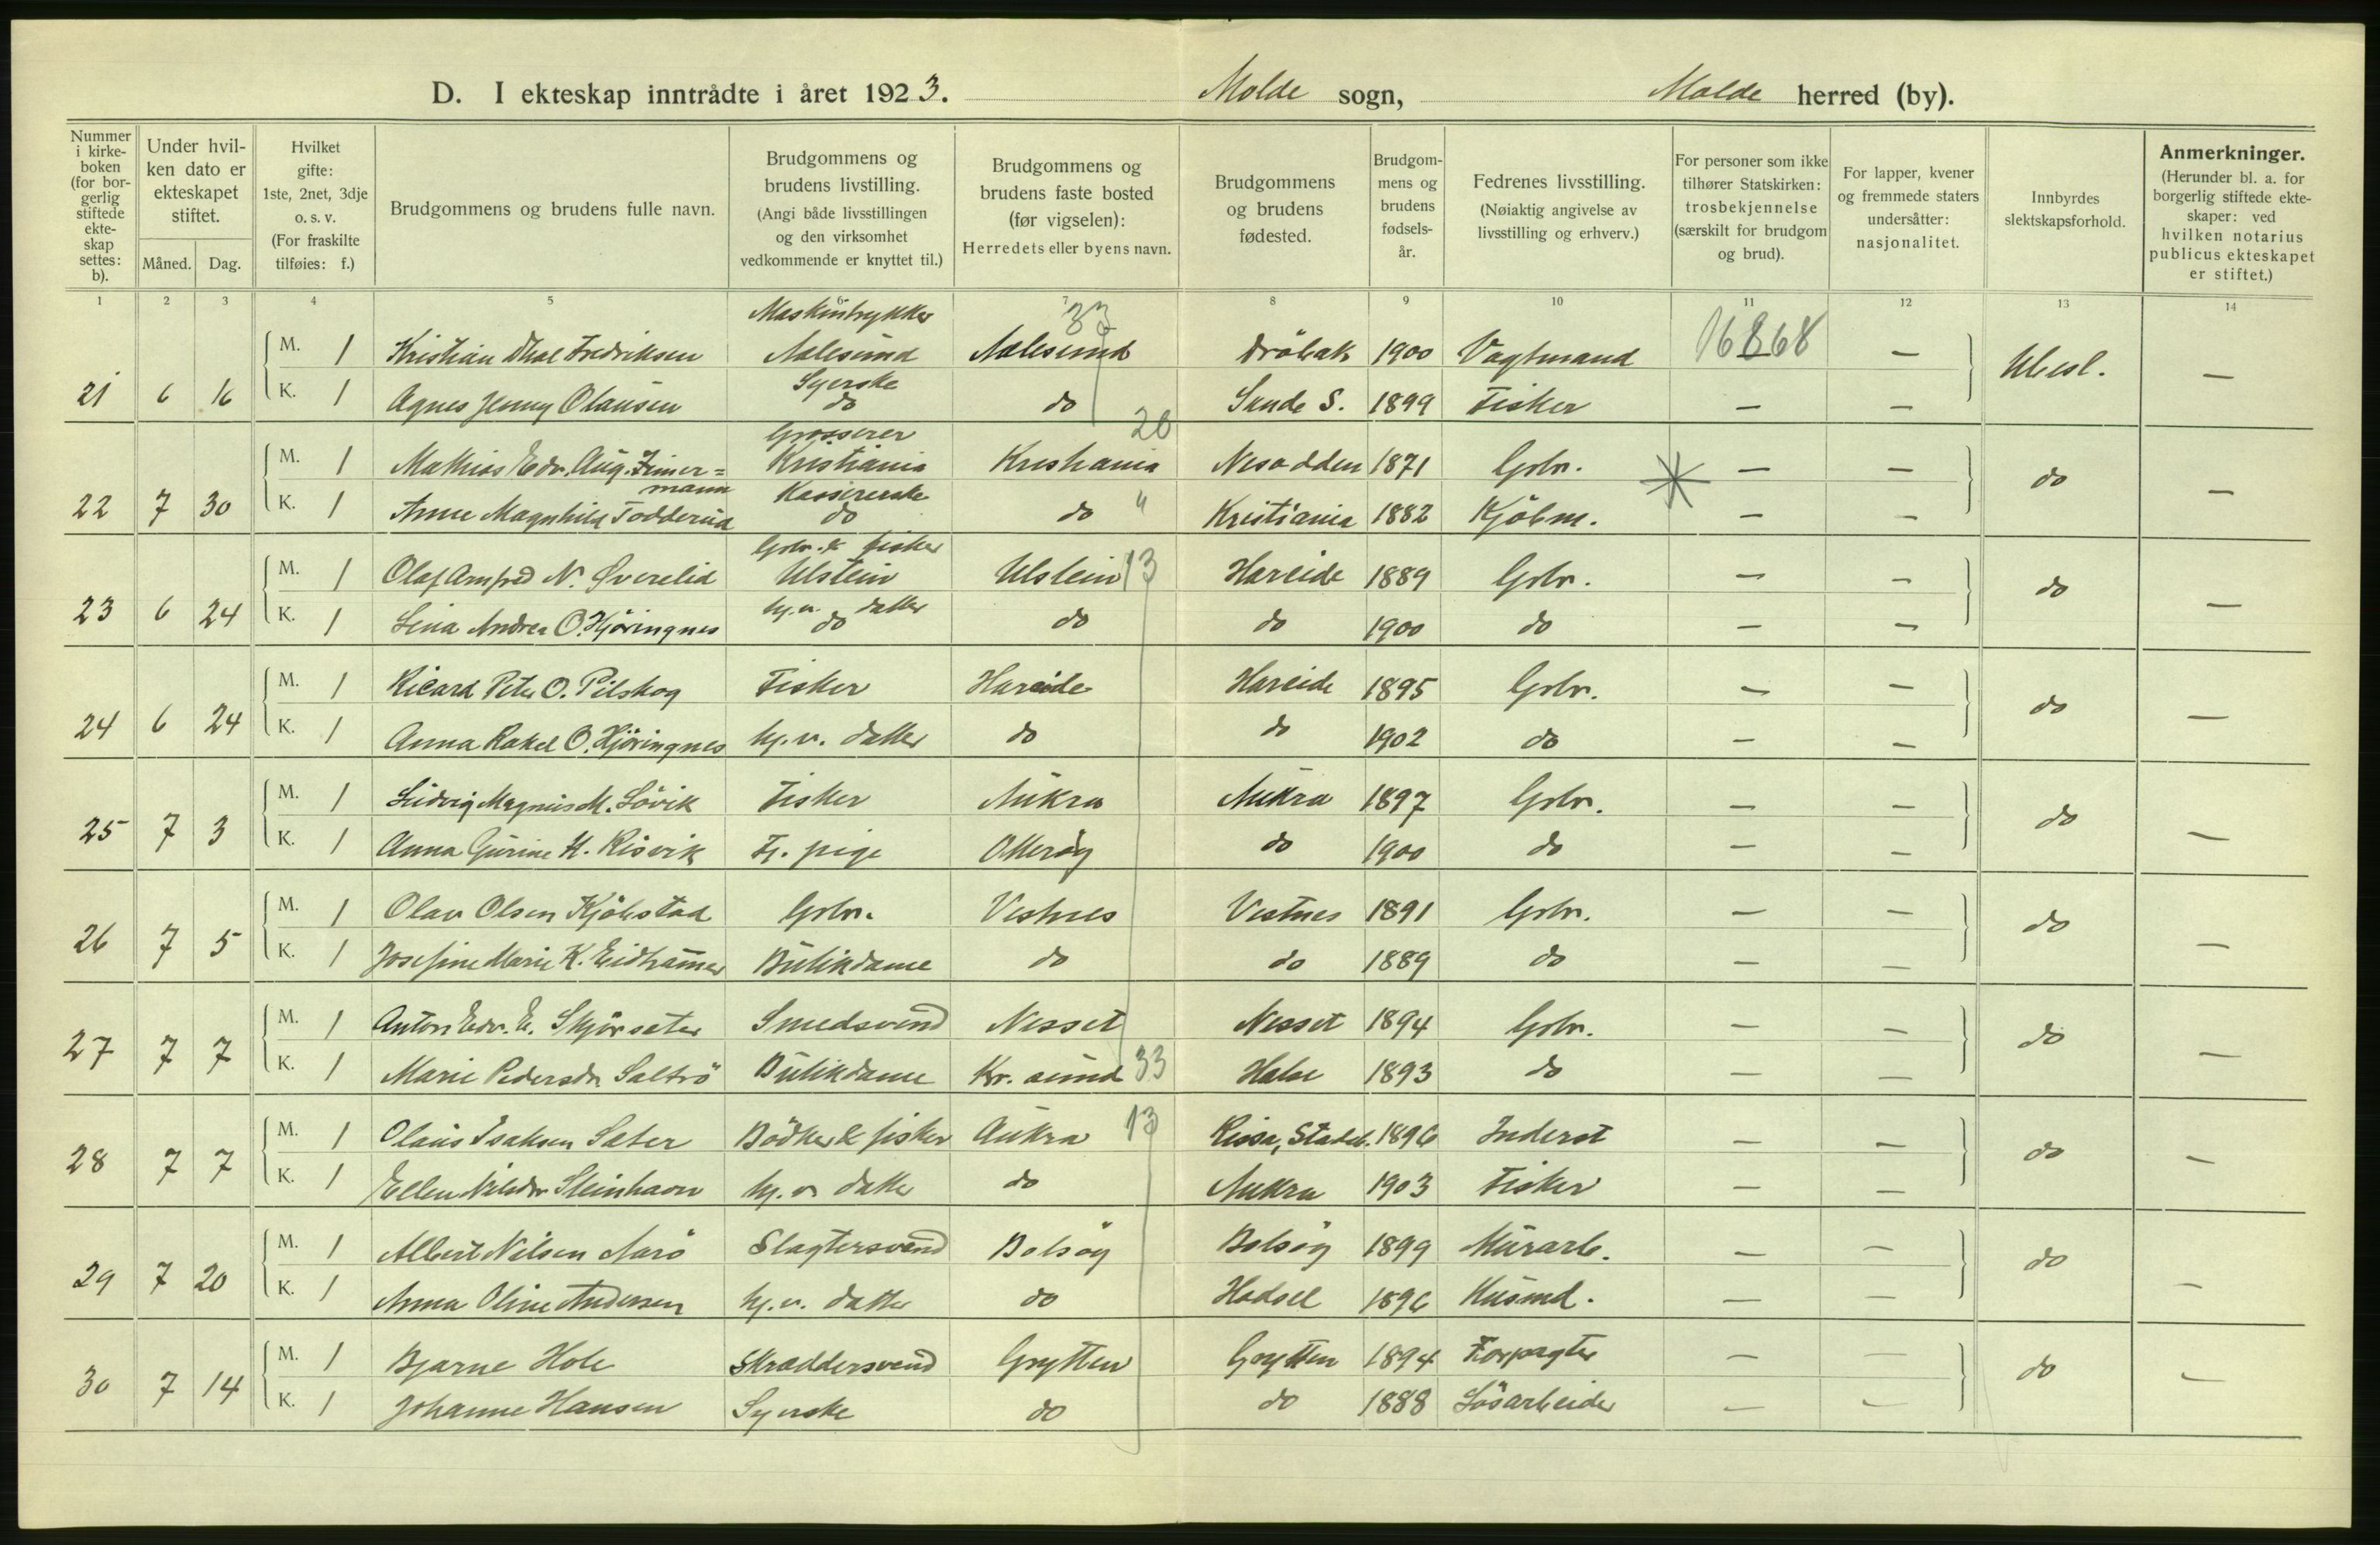 D. I ekteskap inntrådte i året 1923. Molde sogn, Molde herred (by).
Nummer i kirkeboken (for borgerlig stiftede ekteskap settes: b).
Under hvilken dato er ekteskapet stiftet.
Måned. Dag.
Hvilket gifte: 1ste, 2net, 3dje o. s. v. (For fraskilte tilføies: f.)
Brudgommens og brudens fulle navn.
Brudgommens og brudens livstilling. (Angi både livsstillingen og den virksomhet vedkommende er knyttet til.)
Brudgommens og brudens faste bosted (før vigselen): Herredets eller byens navn.
Brudgommens og brudens fødested.
Brudgommens og brudens fødselsår.
Fedrenes livsstilling. (Nøiaktig angivelse av livsstilling og erhverv.)
For personer som ikke tilhører Statskirken: trosbekjennelse (særskilt for brudgom og brud).
For lapper, kvener og fremmede staters undersåtter: nasjonalitet.
Innbyrdes slektskapsforhold.
Anmerkninger. (Herunder bl. a. for borgerlig stiftede ekteskaper: ved hvilken notarius publicus ekteskapet er stiftet.)
1 2 3 4 5 6 7 8 9 10 11 12 13 14
Maskintrykker 33
M. 1 Kristian Dhal Fredriksen Aalesund Aalesund Dröbak 1900 Vagtmand 16868 —
21 6 16 Ubesl. —
Syerske
K. 1 Agnes Jenny Olausen do do Sande S. 1899 Fisker — —
Grosserer 20
M. 1 Mathias Edv. Aug. Zimer= Kristiania Kristiania Nesodden 1871 Grbr. — —
mann
22 7 30 do —
Kassererske
K. 1 Anne Magnhild Todderud do do " Kristiania 1882 Kjöbm. — —
Grbr. & fisker
M. 1 Olaf Arnfred N. Överelid Ulstein Ulstein 13 Hareide 1889 Grbr. — —
23 6 24 do —
hj.v. datter
K. 1 Lina Andrea O. Hjöringnes do do do 1900 do — —
M. 1 Ricard Peter O. Pilskog Fisker Hareide Hareide 1895 Grbr. — —
24 6 24 do —
K. 1 Anna Rakel O. Hjöringnes hj.v. datter do do 1902 do — —
M. 1 Ludvig Magnus M. Lövik Fisker Aukra Aukra 1897 Grbr. — —
25 7 3 do —
K. 1 Anna Gurine H. Risvik Tj. pige Otteröy do 1900 do — —
M. 1 Olav Olsen Kjöbstad Grbr. Vestnes Vestnes 1891 Grbr. — —
26 7 5 do —
K. 1 Josefine Marie K. Eidhammer Butikdame do do 1889 do — —
M. 1 Anton Edv. E. Skjörsæter Smedsvend Nesset Nesset 1894 Grbr. — —
27 7 7 do —
K. 1 Marie Pedersdr Saltrö Butikdame Kr. sund 33 Halse 1893 do — —
M. 1 Olaus Isaksen Sæter Bödker & fisker Aukra 13 Rissa, Stadsb. 1896 Inderst — —
28 7 7 do —
K. 1 Ellen Nilsdr Steinhavn hj.v. datter do Aukra 1903 Fisker — —
M. 1 Albert Nilsen Aarö Slagtersvend Bolsöy Bolsöy 1899 Murarb. — —
29 7 20 do —
K. 1 Anna Oline Andersen hj.v. datter do Hadsel 1896 Husmd. — —
M. 1 Bjarne Hole Skræddersvend Grytten Grytten 1894 Forpagter — —
30 7 14 do —
K. 1 Johanne Hansen Syerske do do 1888 Lösarbeider — —